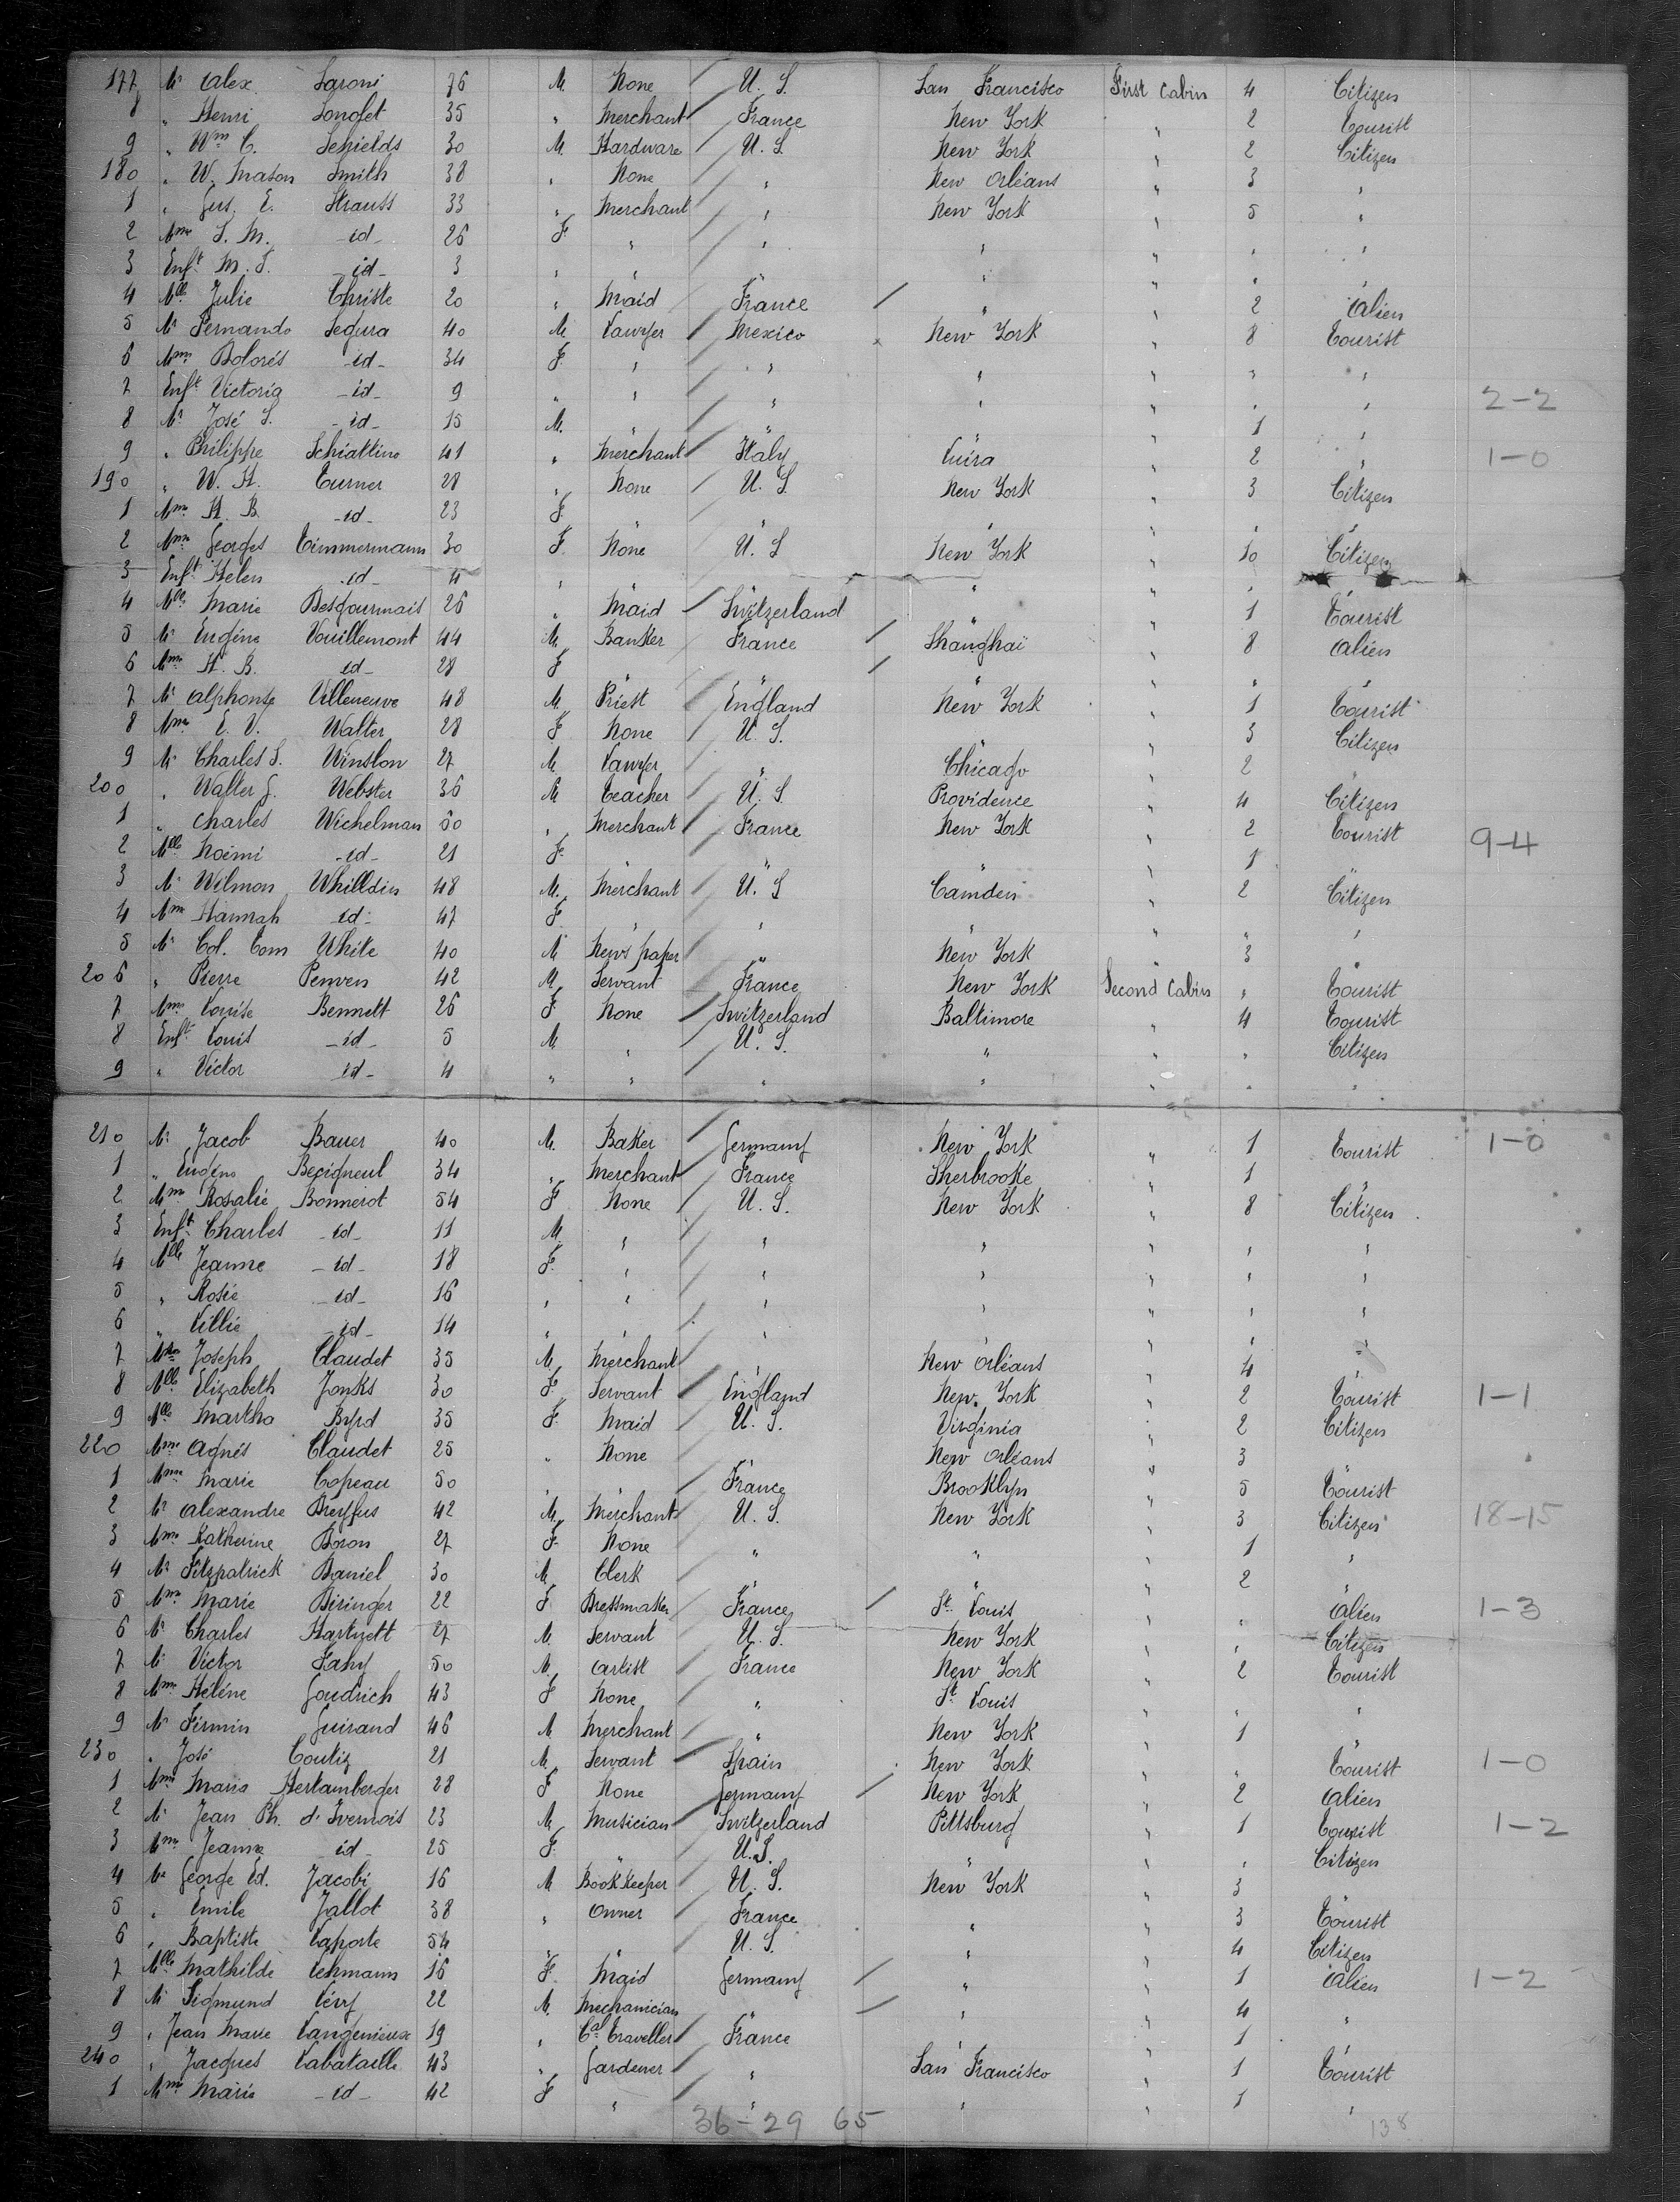 177 Mr Alex. Saroni 76 M. None U. S. San Francisco First Cabin 4 Citizen
8 " Henri Longlet 35 " Merchant France New York " 2 Tourist
9 " Wm C. Schields 30 M. Hardware U. S. New York " 2 Citizen
180 " W. Mason Smith 38 " None " New Orléans " 3 "
1 " Gus. E. Strauss 33 " Merchant " New York " 5 "
2 Mme S. M. -id- 26 F. " " " " " "
3 Enft M. S. -id- 3 " " " " " "
4 Mlle Julie Christe 20 " Maid France " " 2 Alien
5 Mr Fernando Segura 40 M Lawyer Mexico New York " 8 Tourist
6 Mme Dolorés -id- 34 F. " " " " " "
7 Enft Victoria -id- 9 " " " " " " " 2-2
8 Mr José S. -id- 15 M. " " " " 1 "
9 " Philippe Schiattino 41 " Merchant Italy " 2 " 1-0
190 " W. H. Turner 28 " None U. S. New York " 3 Citizen
1 Mme H. B. -id- 23 F. " " " " " "
2 Mme Georges Timmermann 30 F. None U. S New York " 10 Citizen
3 Enft Helen -id- 4 " " " " "
4 Mlle Marie Desfourmais 26 " Maid Switzerland " " 1 Tourist
5 Mr Eugéne Vouillemont 44 M. Banker France Shanghaï " 8 Alien
6 Mme H. B. id- 28 F " " " " " "
7 Mr Alphonse Villeneuve 48 M. Priest England New York " 1 Tourist
8 Mme E. V. Walter 28 F None U. S. " " 3 Citizen
9 Mr Charles S. Winslon 27 M Lawyer " Chicago " 2 "
200 " Walter G. Webster 36 M Teacher U. S. Providence " 4 Citizen
1 " Charles Wichelman 50 " Merchant France New York " 2 Tourist
2 Mlle Noëmi -id- 21 F. " " " " 1 " 9-4
3 Mr Wilmon Whilldin 48 M. Merchant U. S Camden " 2 Citizen
4 Mme Hannah id- 47 F. " " " " " "
5 Mr Col. Tom White 40 M Newspaper " New York " 3 "
206 " Pierre Penven 42 M. Servant France New York Second Cabin " Tourist
7 Mme Louise Bennett 26 F. None Switzerland Baltimore " 4 Tourist
8 Enft Louis -id- 5 M. " U. S. " " " Citizen
9 " Victor id- 4 " " " " " " "
210 Mr Jacob Bauer 40 M. Baker Germany New York " 1 Tourist 1-0
1 " Eugéne Becigneul 34 " Merchant France Sherbrooke " 1 "
2 Mme Rosalie Bonnerot 54 F None U. S. New York " 8 Citizen
3 Enft Charles -id- 11 M. " " " " " "
4 Mlle Jeanne -id- 18 F. " " " " " "
5 " Rosie -id- 16 " " " " " " "
6 " Lillie -id- 14 " " " " " " "
7 Joseph Claudet 35 M. Merchant " New Orléans " 4 "
8 Mlle Elizabeth Jonks 30 F. Servant England New York " 2 Tourist 1-1
9 Mlle Martha Byrd 35 F. Maid U. S. Virginia " 2 Citizen
220 Mme Agnés Claudet 25 " None New Orléans " 3
1 Mme Marie Copeau 50 " " France Brooklyn " 5 Tourist
2 Mr Alexandre Dreyfus 42 M. Merchant U. S. New York " 3 Citizen 18-15
3 Mme Katherine Doron 27 F. None " " " 1 "
4 Mr Fitzpatrick Daniel 30 M. Clerk " " " 2
5 Mme Marie Diringer 22 F Dressmaker France St Louis " " Alien 1-3
6 Mr Charles Hartnett 27 M. Servant U. S. New York " " Citizen
7 Mr Victor Fahy 50 M. Artist France New York " 2 Tourist
8 Mme Héléne Goudrich 43 F None " St Louis " " "
9 Mr Firmin Guirand 46 M Merchant " New York " 1
230 " José Coutiz 21 M. Servant Spain New York " " Tourist 1-0
1 Mme Maria Herkamberger 28 F None Germany New York " 2 Alien
2 Mr Jean Ph. d'Ivernois 23 M. Musician Switzerland Pittsburg " 1 Tourist 1-2
3 Mme Jeanne id- 25 F. " U.S. " " " Citizen
4 Mr George Ed. Jacobi 16 M Bookkeeper U. S. New York " 3
5 " Emile Jallot 38 " Owner France " " 3 Tourist
6 " Baptiste Laporte 54 " U. S. " " 4 Citizen
7 Mlle Mathilde Lehmann 16 F. Maid Germany " " 1 Alien 1-2
8 Mr Sigmund Lévy 22 M. Mechanician " " 4 "
9 " Jean Marie Langenieux 19 " Cal Traveller France " " 1
240 " Jacques Labataille 43 " Gardener " San Francisco " 1 Tourist
1 Mme Marie -id- 42 F " " " " 1 "
36-29 65 138